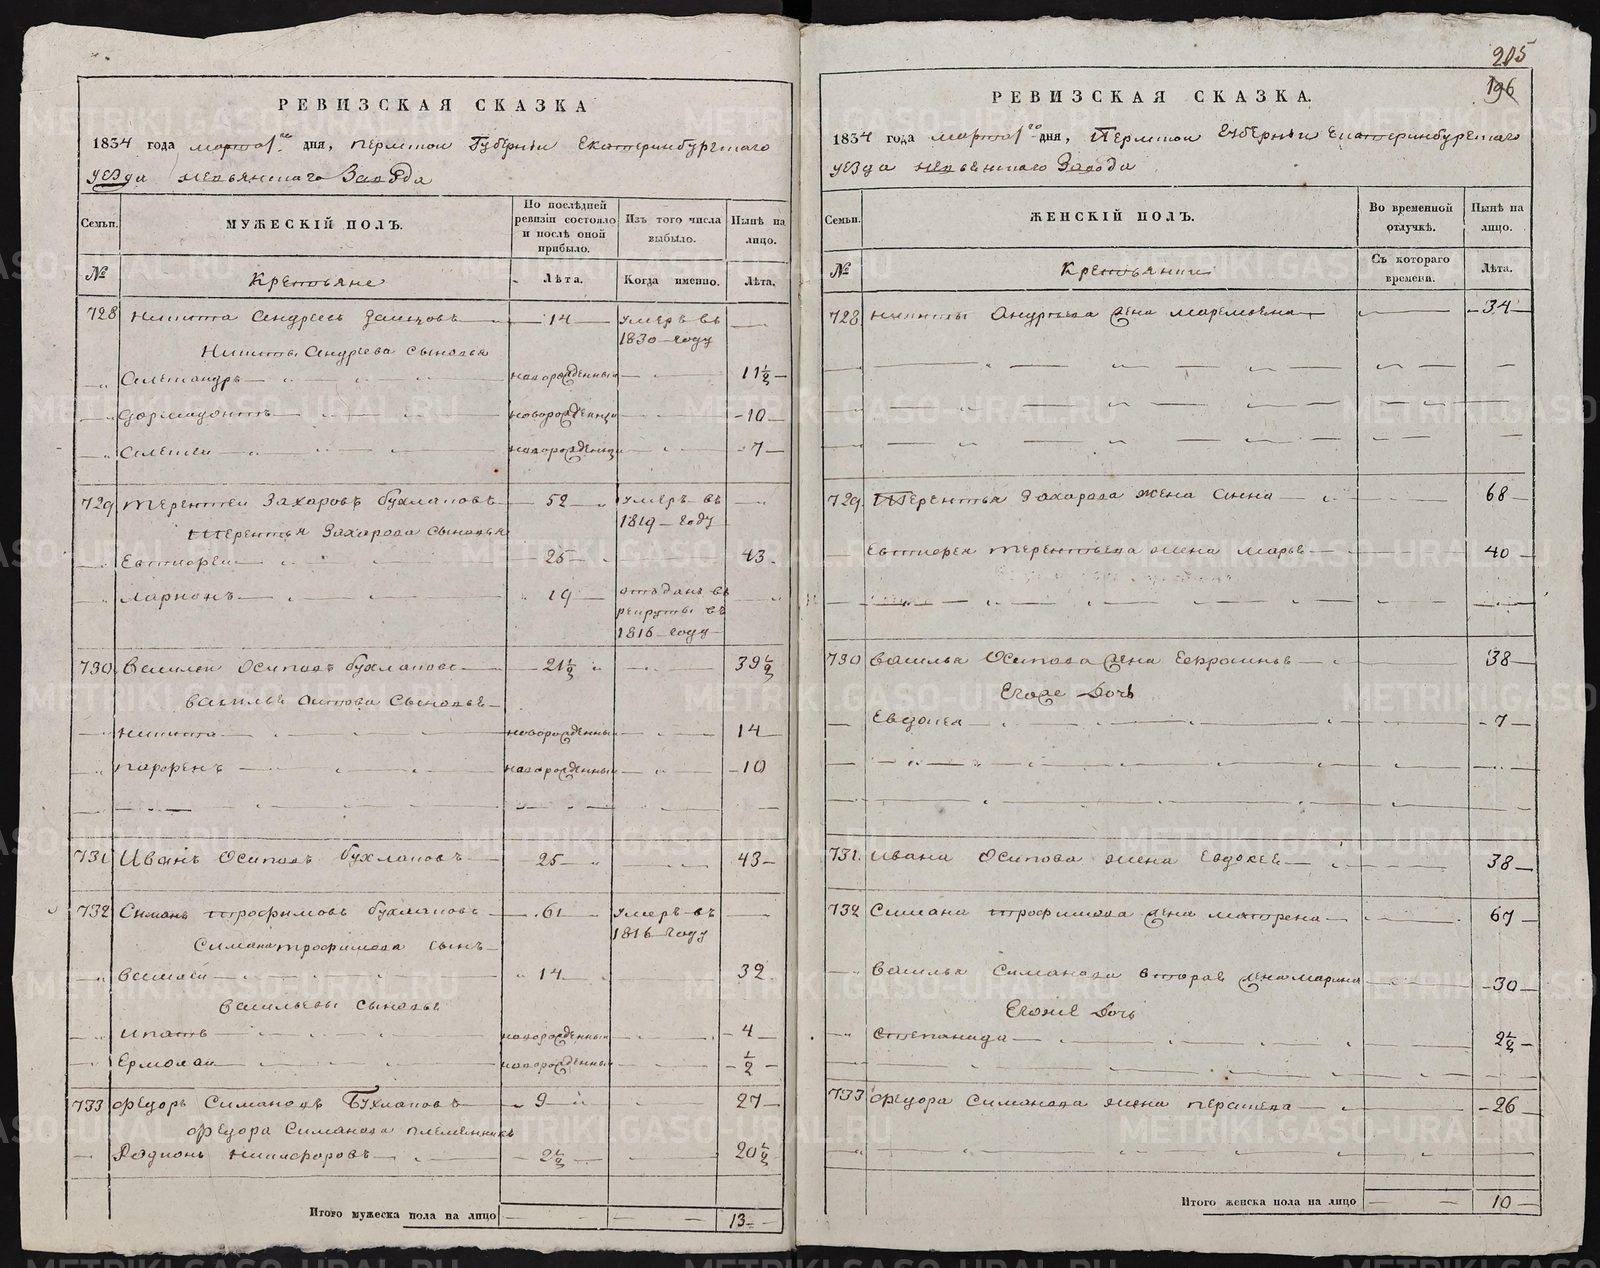 205
196
РЕВИЗСКАЯ СКАЗКА
1834 года марта 1го дня, Пермской Губернiи Екатеринбургскаго
уезда Невьянскаго Завода
Семьи.
МУЖЕСКIЙ ПОЛЪ.
По послѣдней ревизiи состояло и послѣ оной прибыло.
Изъ того числа выбыло.
Нынѣ на лицо.
№
Крестьяне
Лѣта.
Когда именно.
Лѣта.
728 Никита Андреевъ — 14 — умеръ въ
1830 году
Никиты Андреева сыновья
Александръ — новорожденный — 11½
новорожденный — 10
Алексеи — новорожденный — 7
729 Терентеи Захаровъ Бухлановъ — 52 умеръ въ
1819 году
Терентья Захарова сыновья
Евтифеи — 25 — 43
Ларионъ — 19 отъданъ въ
рекруты въ
1816 году
730 Василеи Осиповъ Бухлановъ — 21½ — 39½
Василья Осипова сыновья
Никита — новорожденный — 14
Парфенъ — новорожденный — 10
731 Иванъ Осиповъ Бухлановъ — 25 — 43
732 Симанъ Трофимовъ Бухлановъ — 61 умеръ въ
1816 году
Симана Трофимова сынъ
Василеи — 14 — 32
Васильевы сыновья
Ипатъ — новорожденный — 4
Ермолаи — новорожденный — ½
733 Федоръ Симановъ Бухлановъ — 9 — 27
Федора Симанова племянникъ
Родионъ Никифоровъ — 2½ — 20½
Итого мужеска пола на лицо — 13
РЕВИЗСКАЯ СКАЗКА.
1834 года марта 1го дня, Пермской Губернiи Екатеринбургскаго
уезда Невьянскаго Завода
Семьи.
ЖЕНСКIЙ ПОЛЪ.
Во временной отлучкѣ.
Нынѣ на лицо.
№
Крестьянки
Съ котораго времена.
Лѣта.
728 Никиты Андреева жена — 34
729 Терентья Захарова жена Анна — 68
Евтифея Терентьева жена Марья — 40
730 Василья Осипова жена Ефросинья — 38
Егоже дочь
Евдокея — 7
731. Ивана Осипова жена Евдокея — 38
732 Симана Трофимова жена Матрена — 67
Василья Симанова вторая жена Марина — 30
Егоже дочь
Степанида — 2½
733 Федора Симанова жена — 26
Итого женска пола на лицо — 10
METRIKI.GASO-URAL.RU